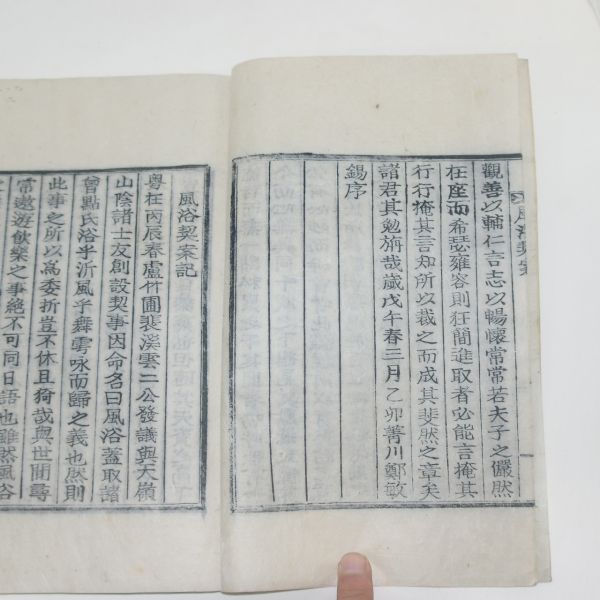 觀善以輔仁言志以暢懷常常若夫子之儼然
在座而希瑟雍容則狂簡進取者必能言掩其
行行掩其言知所以裁之而成其斐然之章矣
諸君其勉旃哉歲戊午春三月乙卯菁川鄭敏
錫序
風浴契案記
粤在丙辰春盧竹圃裴溪雲二公發議與天嶺
山陰諸士友創設契事因命名曰風浴蓋取諸
曾點氏浴乎沂風乎舞雩咏而歸之義也然則
此事之所以爲委折豈不休且猗哉與世間尋
常遨遊飲樂之事絶不可同日語也雖然風浴